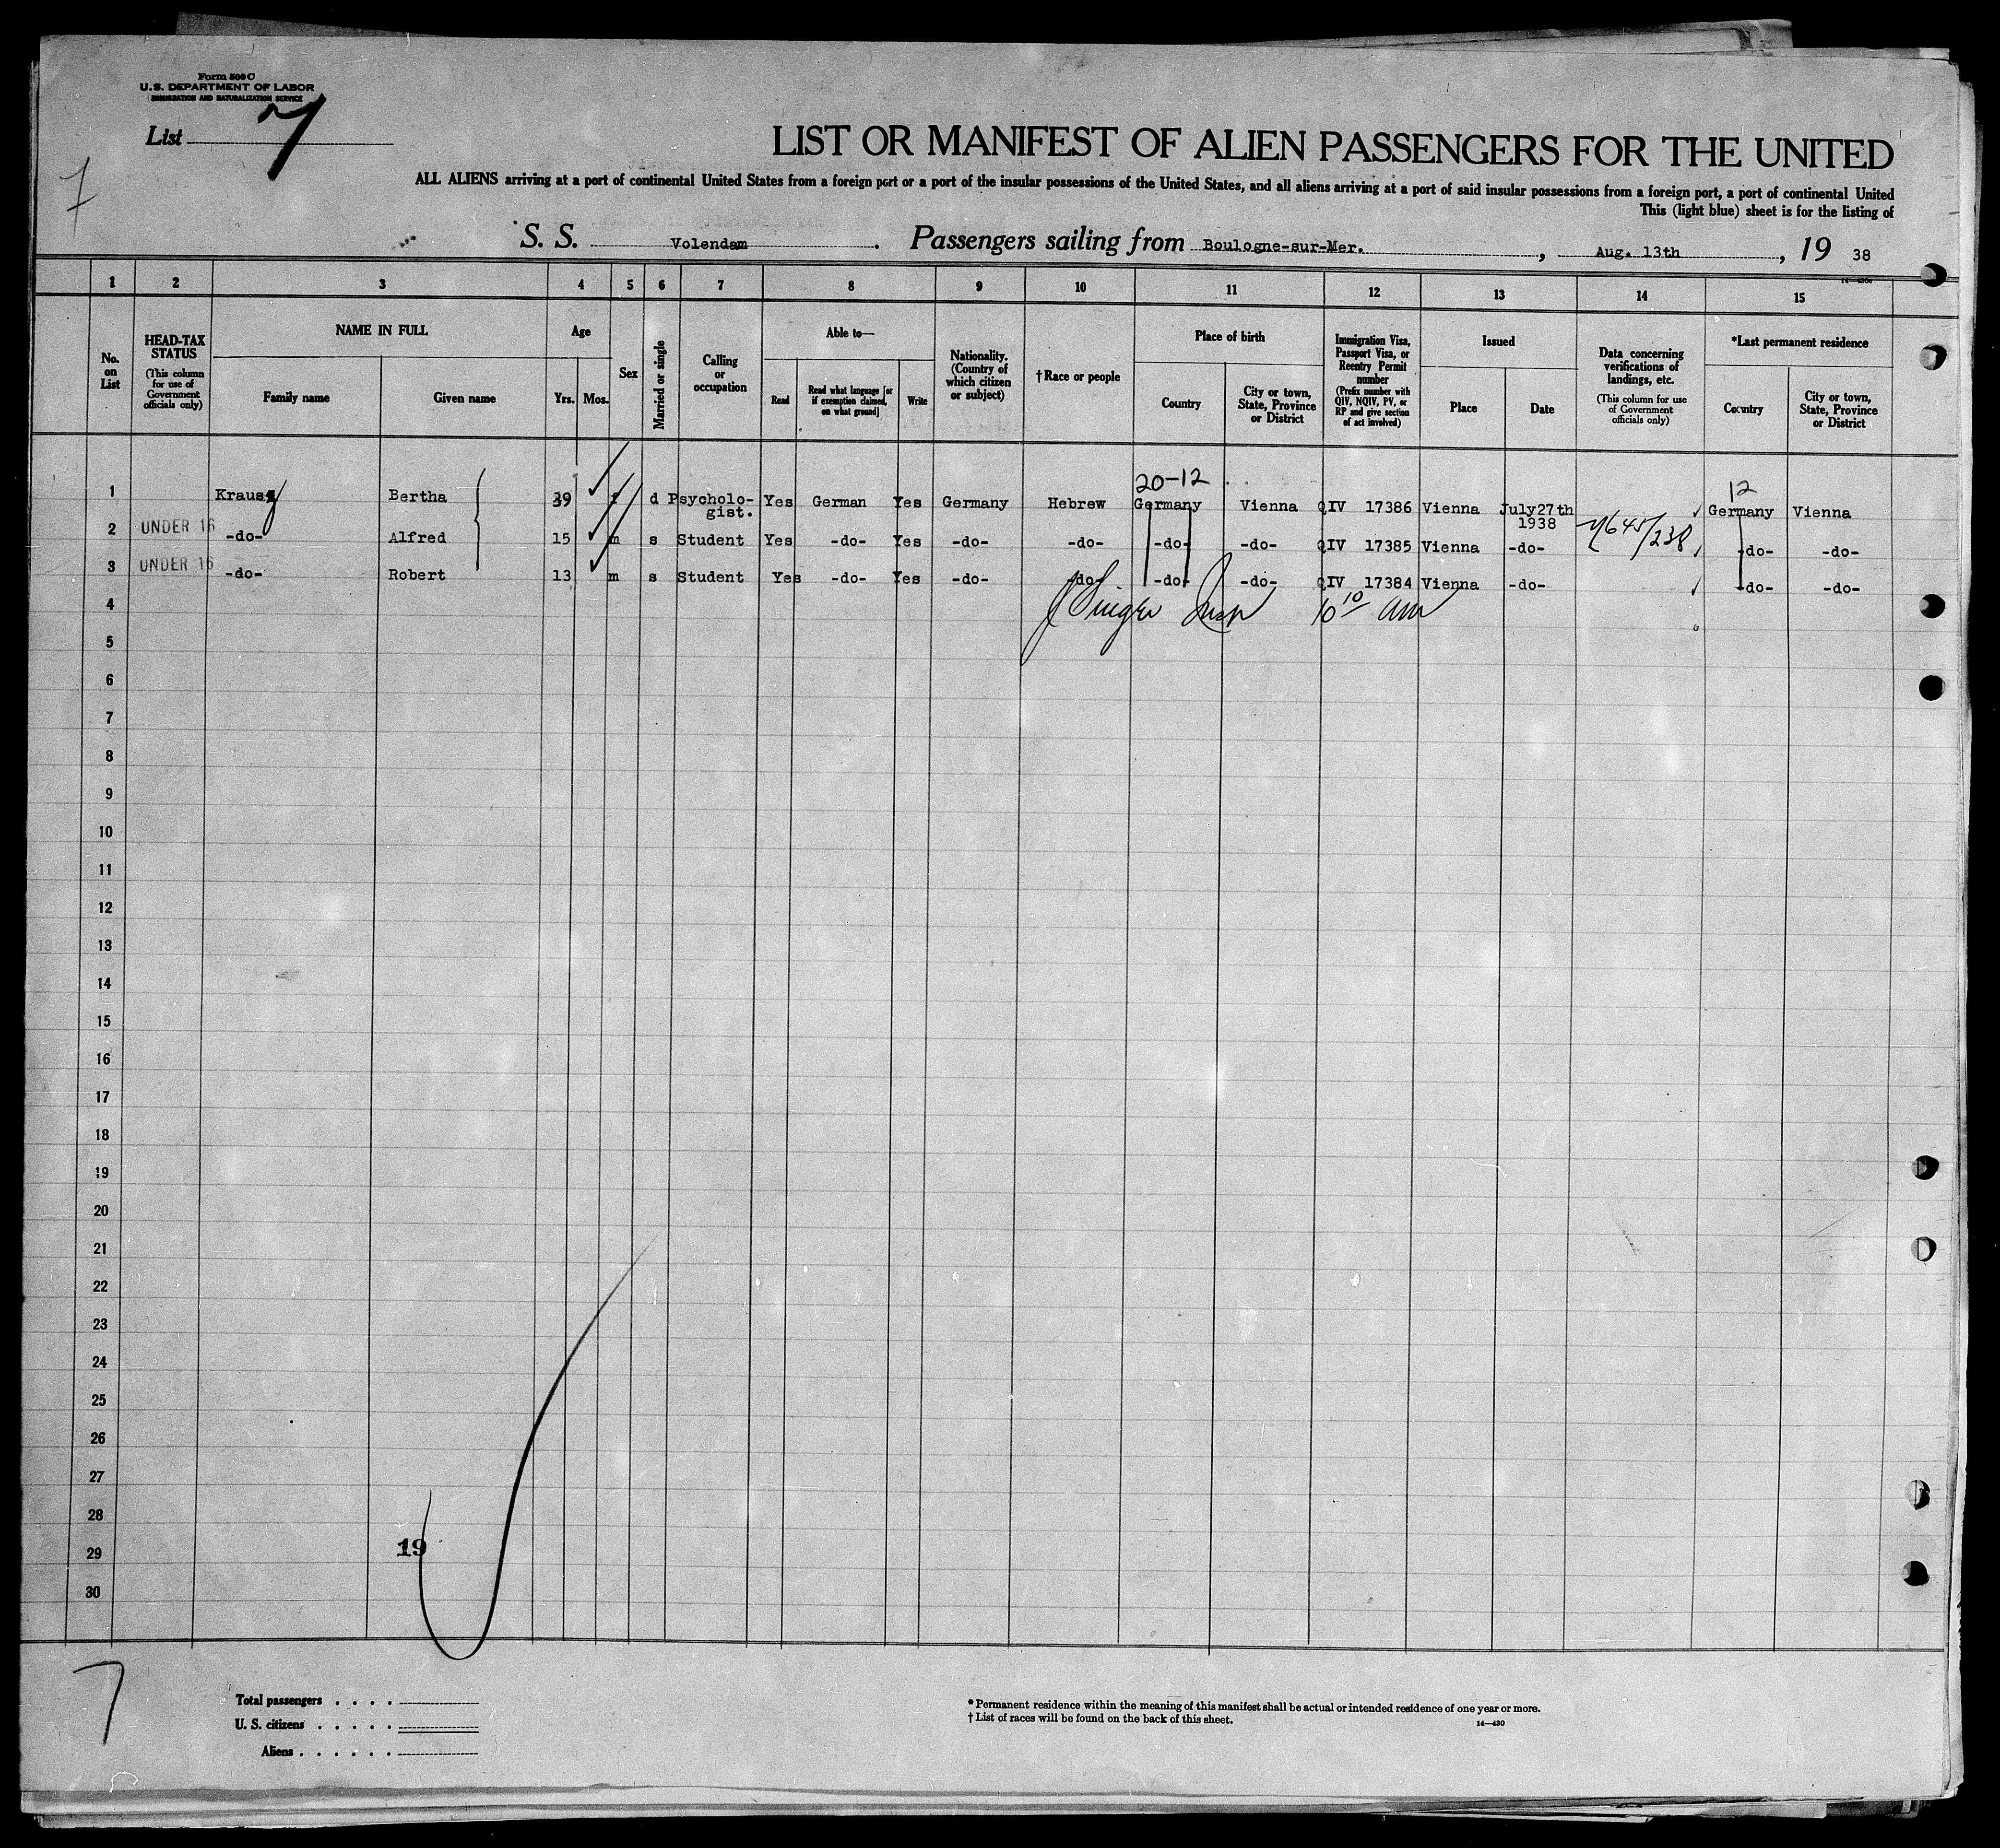 Form 500 C
U.S. DEPARTMENT OF LABOR
IMMIGRATION AND NATURALIZATION SERVICE
List 7
7
LIST OR MANIFEST OF ALIEN PASSENGERS FOR THE UNITED
ALL ALIENS arriving at a port of continental United States from a foreign port or a port of the insular possessions of the United States, and all aliens arriving at a port of said insular possessions from a foreign port, a port of continental United
This (light blue) sheet is for the listing of
S. S. Volendam. Passengers sailing from Boulogne-sur-Mer., Aug. 13th, 19 38
1 2 3 4 5 6 7 8 9 10 11 12 13 14 15
No. on List
HEAD-TAX STATUS (This column for use of Government officials only)
NAME IN FULL
Family name Given name
Age
Yrs. Mos.
Sex
Married or single
Calling or occupation
Able to—
Read Read what language [or if exemption claimed, on what ground] Write
Nationality. (Country of which citizen or subject)
† Race or people
Place of birth
Country City or town, State, Province or District
Immigration Visa, Passport Visa, or Reentry Permit number (Prefix number with QIV, NQIV, PV, or RP and give section of act involved)
Issued
Place Date
Data concerning verifications of landings, etc. (This column for use of Government officials only)
*Last permanent residence
Country City or town, State, Province or District
20-12 12
1 Krausz Bertha 39 f d Psycholo-gist. Yes German Yes Germany Hebrew Germany Vienna QIV 17386 Vienna July27th 1938 Germany Vienna
2 UNDER 16 -do- Alfred 15 m s Student Yes -do- Yes -do- -do- -do- -do- QIV 17385 Vienna -do- -do- -do-
3 UNDER 16 -do- Robert 13 m s Student Yes -do- Yes -do- -do- -do- -do- QIV 17384 Vienna -do- -do- -do-
4 10 10 am
5
6
7
8
9
10
11
12
13
14
15
16
17
18
19
20
21
22
23
24
25
26
27
28
29 19
30
7
Total passengers . . . .
U. S. citizens . . . . .
Aliens . . . . . .
* Permanent residence within the meaning of this manifest shall be actual or intended residence of one year or more.
† List of races will be found on the back of this sheet.
14—430